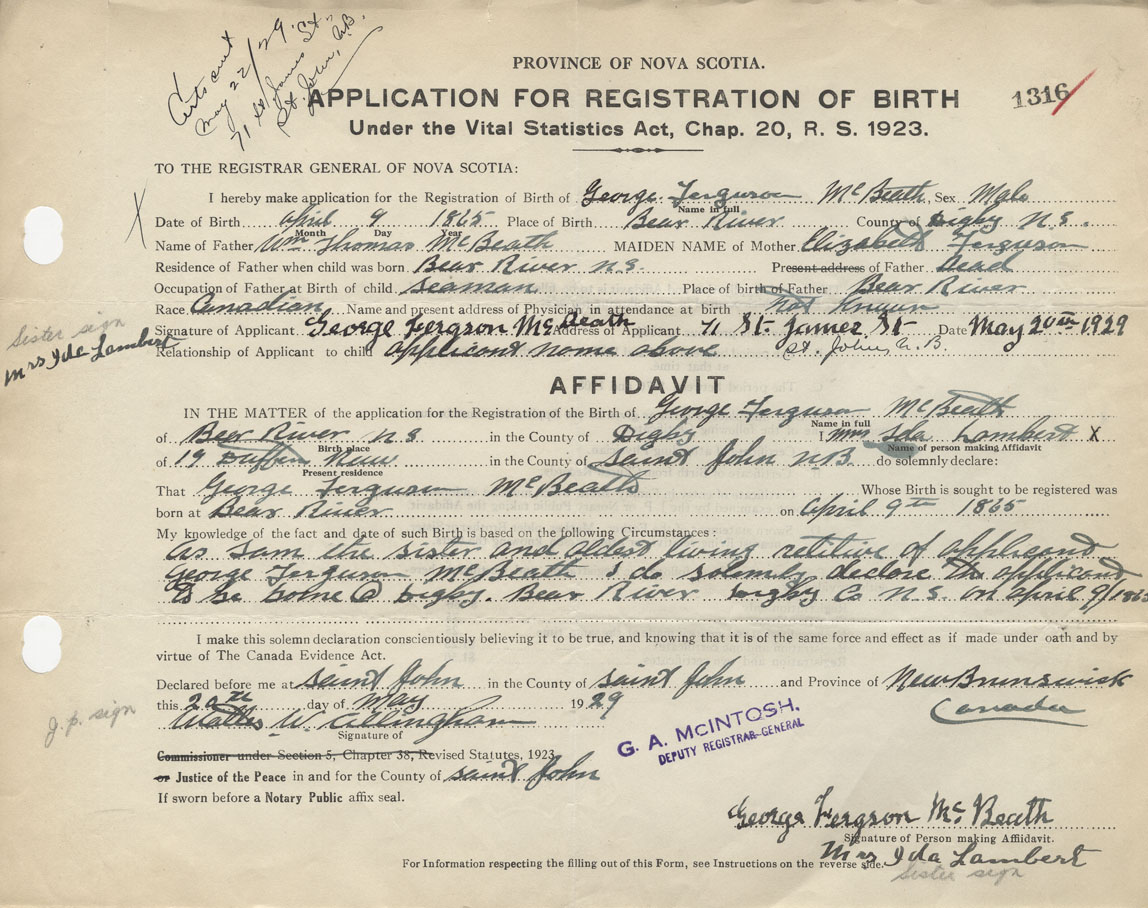 Certs cent
May 22/29.
71 St. James St.,
St. John, N.B.
PROVINCE OF NOVA SCOTIA.
APPLICATION FOR REGISTRATION OF BIRTH
1316
Under the Vital Statistics Act, Chap. 20, R. S. 1923.
TO THE REGISTRAR GENERAL OF NOVA SCOTIA:
I hereby make application for the Registration of Birth of George Ferguson McBeath Sex Male
Name in full
X
Date of Birth April 9 1865 Place of Birth Bear River County of Digby N.S.
Month Day Year
Name of Father Wm Thomas McBeath MAIDEN NAME of Mother Elizabeth Ferguson
Residence of Father when child was born Bear River N.S. Present address of Father Dead
Occupation of Father at Birth of child seaman Place of birth of Father Bear River
Race Canadian Name and present address of Physician in attendance at birth not known
Signature of Applicant George Fergson McBeath Address of Applicant 71 St. James St Date May 20th 1929
Sister sign
Mrs Ida Lambert
Relationship of Applicant to child applicant name above St. John, N.B.
AFFIDAVIT
IN THE MATTER of the application for the Registration of the Birth of George Ferguson McBeath
Name in full
of Beer River N.S. in the County of Digby I Mrs Ida Lambert X
Birth place Name of person making Affidavit
of 19 Duffin in the County of Saint John NB do solemnly declare:
Present residence
That George Ferguson McBeath Whose Birth is sought to be registered was
born at Bear River on April 9th 1865
My knowledge of the fact and date of such Birth is based on the following Circumstances:
as I am the sister and oldest living retitive of applicant
George Ferguson McBeath I do solemly declare the applicant
to be borne @ Digby. Bear River Digby Co N.S. on April 9/1865
I make this solemn declaration conscientiously believing it to be true, and knowing that it is of the same force and effect as if made under oath and by
virtue of The Canada Evidence Act.
Declared before me at Saint John in the County of Saint John and Province of New Brunswick
this 20th day of May 1929 Canada
J.P. sign
W. Cillingham
Signature of
G. A. MCINTOSH.
DEPUTY REGISTRAR-GENERAL
Commissioner under Section 5, Chapter 38, Revised Statutes, 1923
or Justice of the Peace in and for the County of Saint John
If sworn before a Notary Public affix seal.
George Fergson McBeath
Signature of Person making Affidavit.
Mrs Ida Lambert
For Information respecting the filling out of this Form, see Instructions on the reverse side.
Sister sign